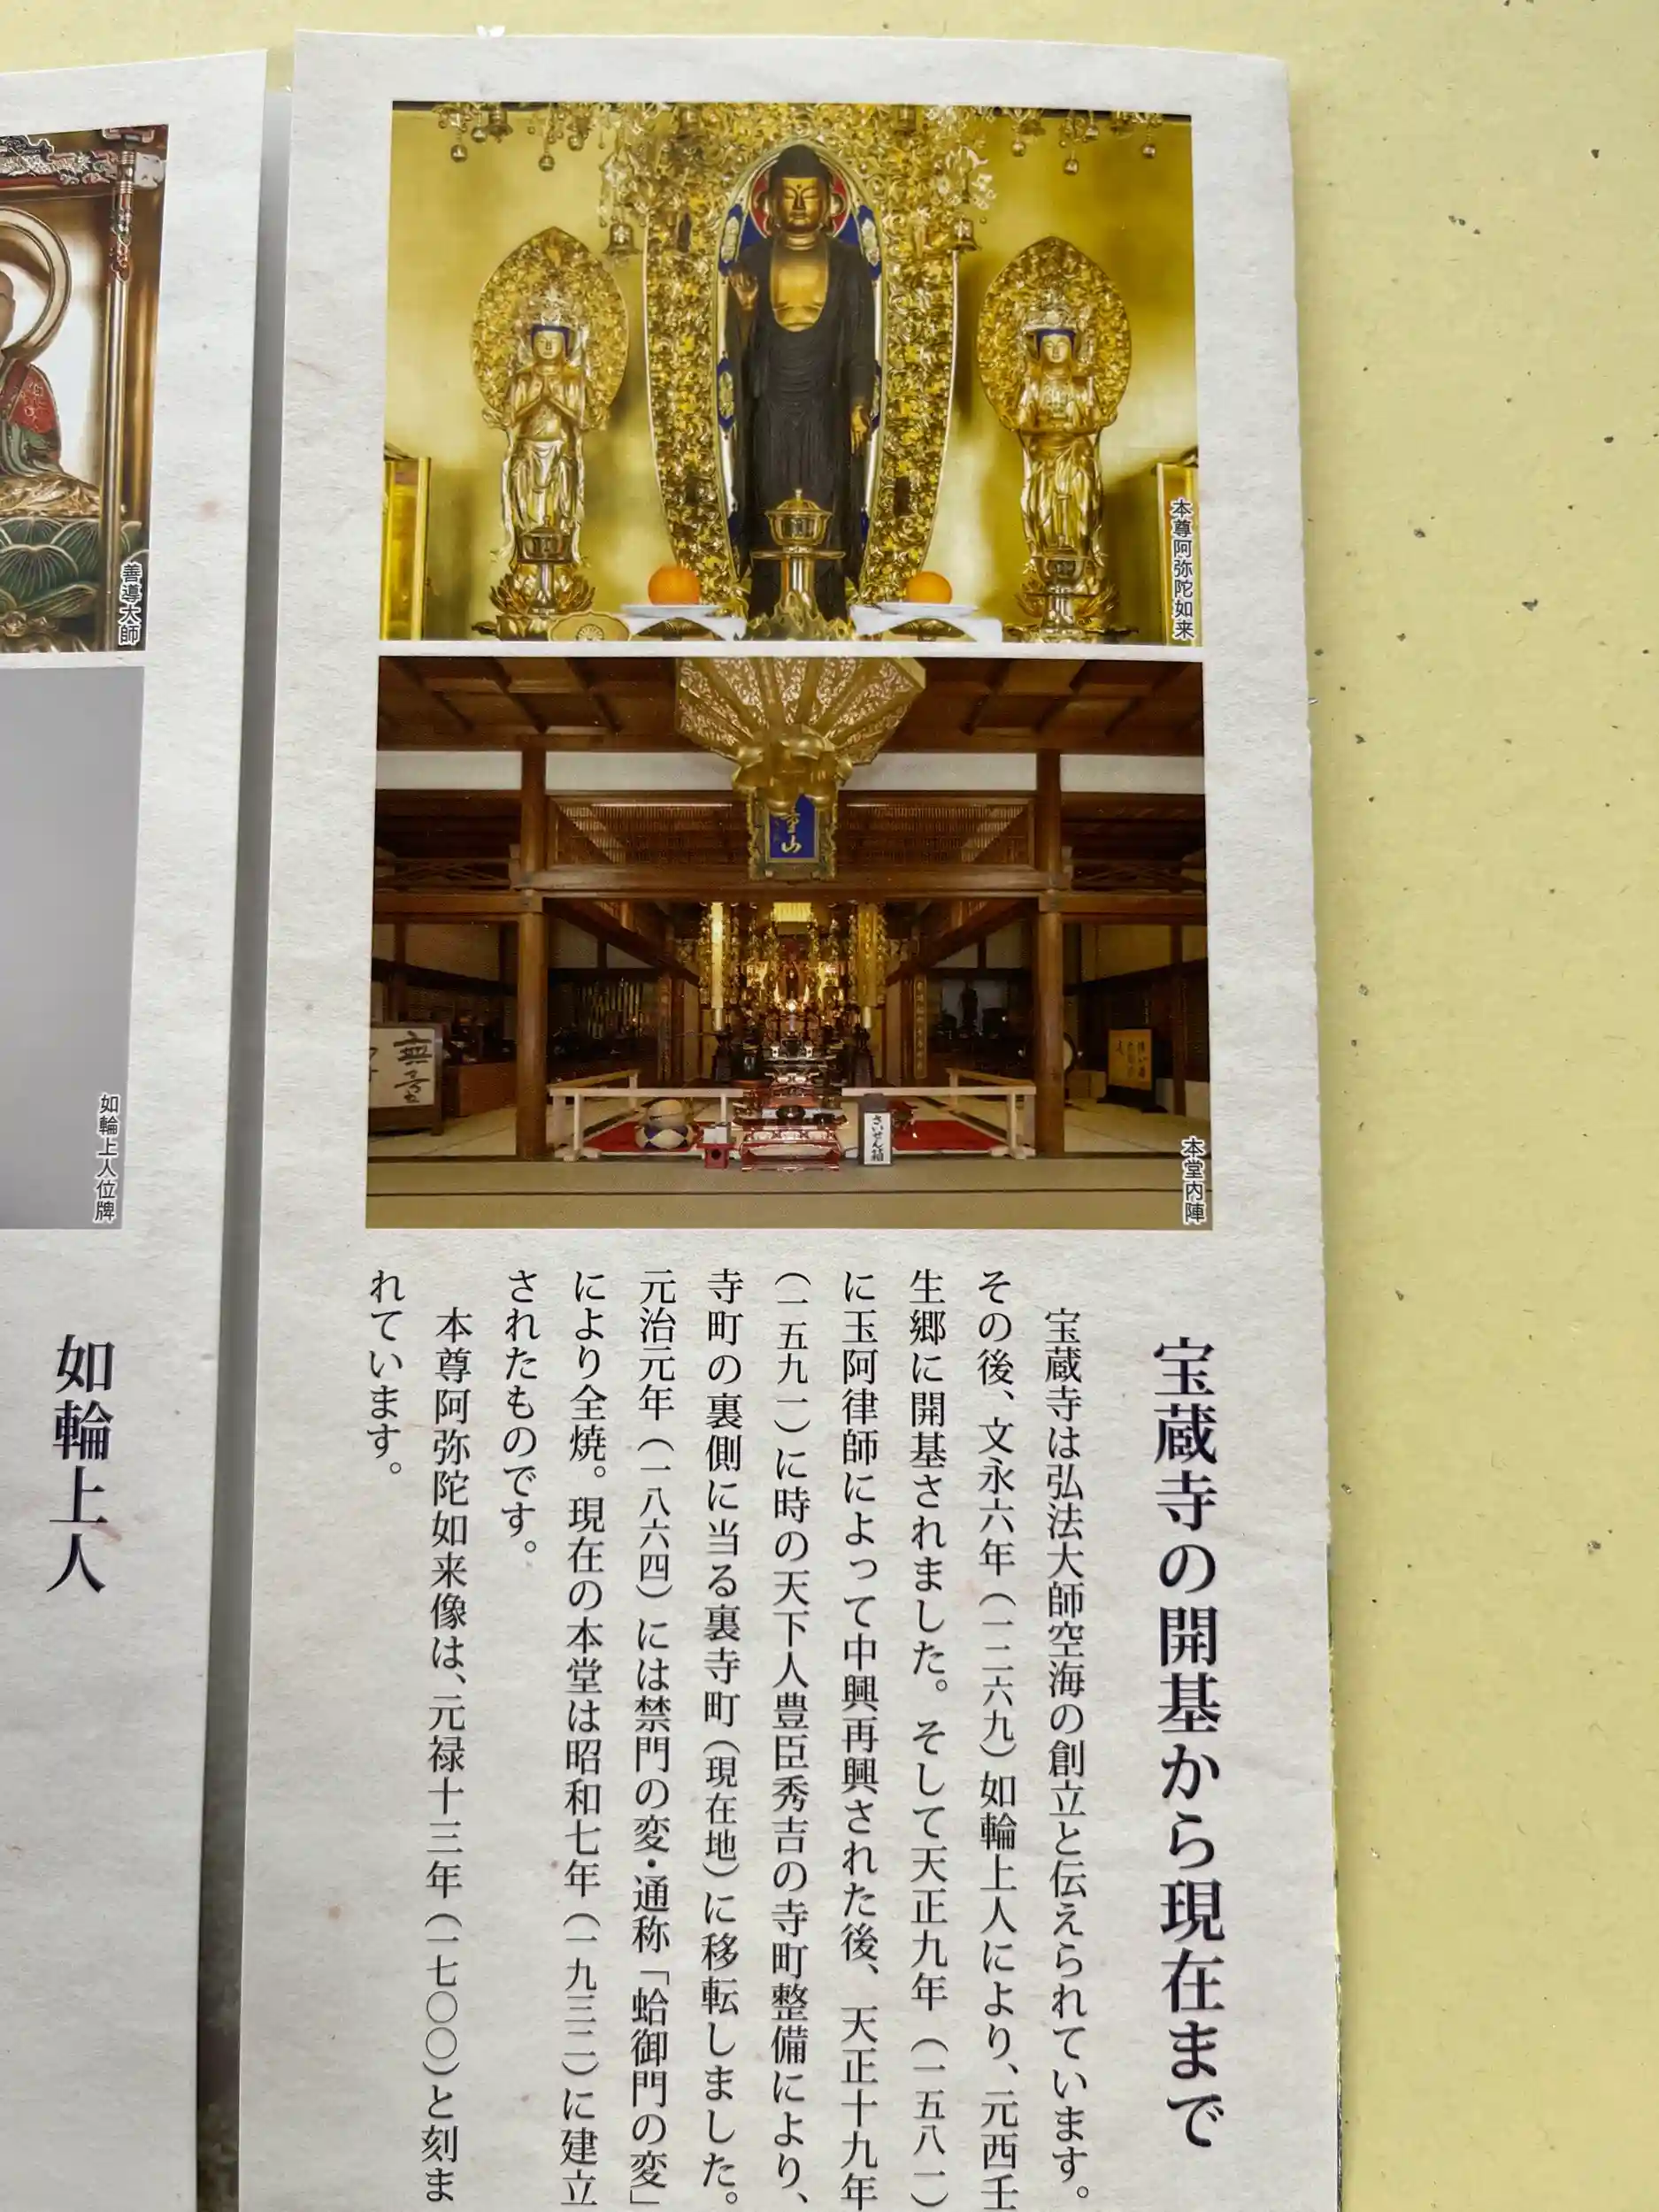 本尊阿弥陀如来
山
さいせん箱
本堂内陣
宝蔵寺の開基から現在まで
宝蔵寺は弘法大師空海の創立と伝えられています。
その後、文永六年（一二六九）如輪上人により、元西壬
生郷に開基されました。そして天正九年（一五八一）
に玉阿律師によって中興再興された後、天正十九年
（一五九一）に時の天下人豊臣秀吉の寺町整備により、
寺町の裏側に当る裏寺町（現在地）に移転しました。
元治元年（一八六四）には禁門の変・通称「蛤御門の変」
により全焼。現在の本堂は昭和七年（一九三二）に建立
されたものです。
本尊阿弥陀如来像は、元禄十三年（一七〇〇）と刻ま
れています。
善導大師
如輪上人位牌
如輪上人